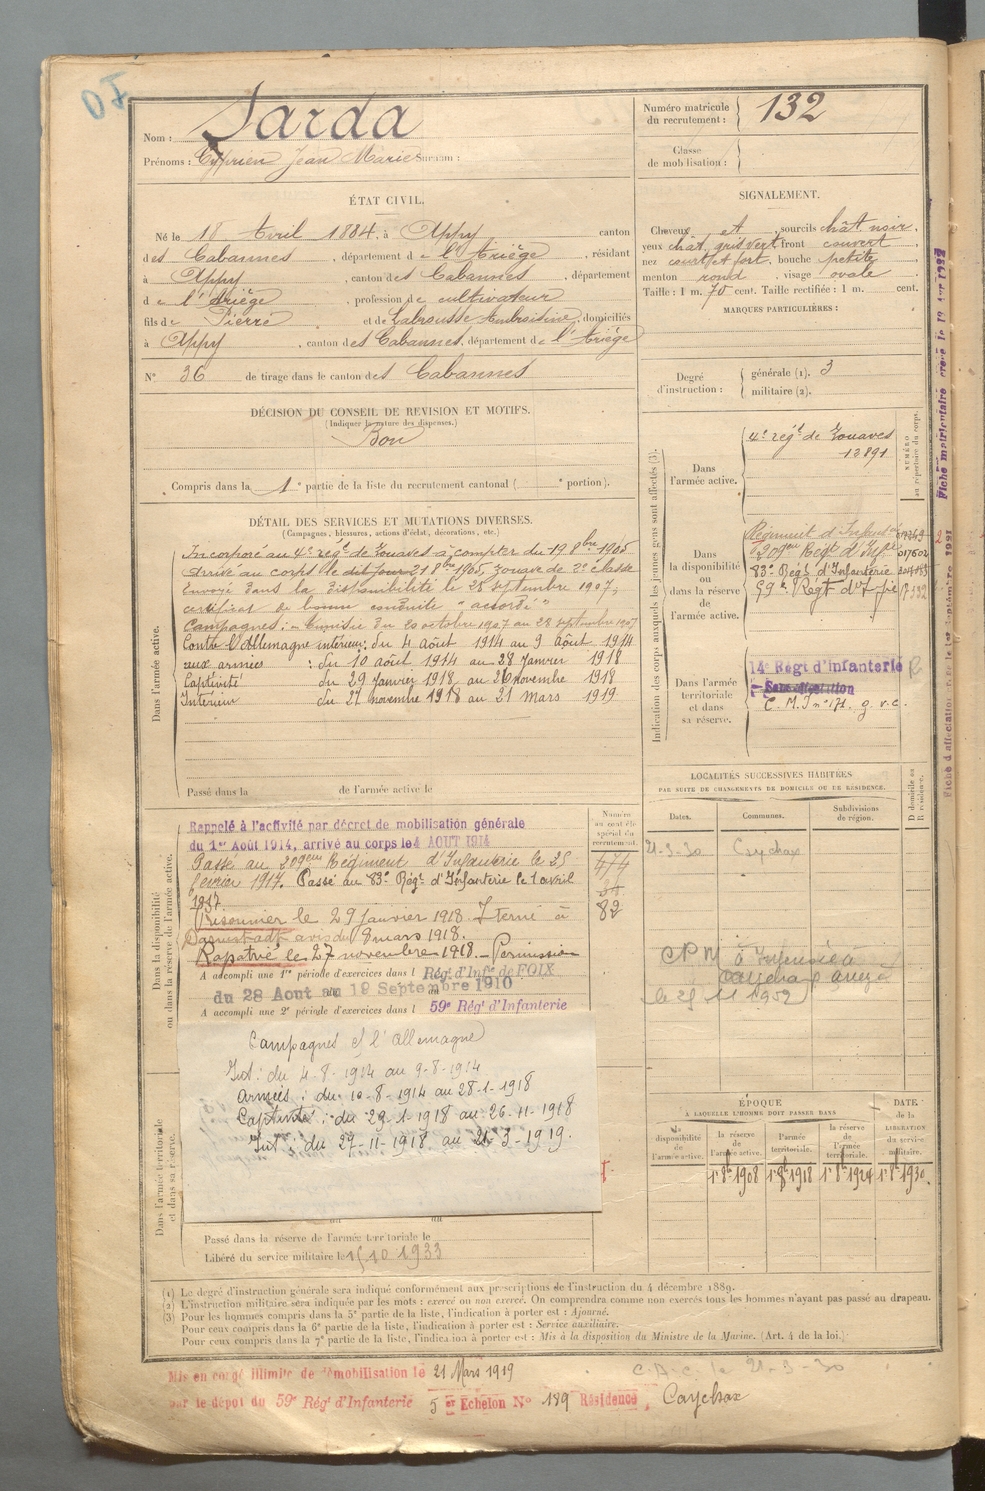 OI
Nom : Sarda
Prénoms : Cyprien Jean Marie Surnom :
Numéro matricule du recrutement : 132
Classe de mobilisation :
ÉTAT CIVIL.
Né le 18 Avril 1884, à Appy canton
des Cabannes, département de l'Ariège, résidant
à Appy, canton des Cabannes, département
de l'Ariège, profession de cultivateur
fils de Pierre et de Labrousse Ambroisine, domiciliés
à Appy, canton des Cabannes, département de l'Ariège
N° 36 de tirage dans le canton des Cabannes
SIGNALEMENT.
Cheveux et sourcils chât noir,
yeux chât. gris vert front couvert
nez court et fort, bouche petite
menton rond, visage ovale
Taille : 1 m. 70 cent. Taille rectifiée : 1 m. cent.
MARQUES PARTICULIÈRES :
Degré d'instruction : générale (1). 3
militaire (2).
DÉCISION DU CONSEIL DE REVISION ET MOTIFS.
(Indiquer la nature des dispenses.)
Bon
Compris dans la 1e partie de la liste du recrutement cantonal ( e portion).
DÉTAIL DES SERVICES ET MUTATIONS DIVERSES.
(Campagnes, blessures, actions d'éclat, décorations, etc.)
Dans l'armée active.
Incorporé au 4e régt de Zouaves à compter du 19 8bre 1905
Arrivé au corps le dit jour 21 8bre 1905, Zouave de 2e classe
Envoyé dans la disponibilité le 28 septembre 1907,
certificat de bonne conduite "accordé"
Campagnes : Tunisie du 20 octobre 1907 au 28 septembre 1907
Contre l'Allemagne intérieur: du 4 août 1914 au 9 août 1914
aux armées : du 10 août 1914 au 28 Janvier 1918
Captivité du 29 Janvier 1918 au 26 novembre 1918
Intérieur du 27 novembre 1918 au 21 Mars 1919
Passé dans la de l'armée active le
Indication des corps auxquels les jeunes gens sont affectés (3).
NUMÉRO au répertoire du corps.
Dans l'armée active.
4e régt de Zouaves
13891
Dans la disponibilité ou dans la réserve de l'armée active.
Régiment d'Infant
209eme Régt d'Infie 017602
83e Régt d'Infanterie
59e Régt d'Infie
Dans l'armée territoriale et dans sa réserve.
14e Régt d'infanterie
Sans affectation
C. M. I n° 171. g. v. c.
LOCALITÉS SUCCESSIVES HABITÉES
PAR SUITE DE CHANGEMENTS DE DOMICILE OU DE RÉSIDENCE.
Dates. Communes. Subdivisions de région. D domicile ou R résidence.
21-3-30 Caychax
le 29 11 1952
Dans la disponibilité ou dans la réserve de l'armée active.
Numéro au contrôle spécial du recrutement.
Rappelé à l'activité par décret de mobilisation générale
du 1er Août 1914, arrivé au corps le 4 AOUT 1914
Passé au 209eme Régiment d'Infanterie le 25
février 1917. Passé au 83e Régt d'Infanterie le 1 avril
1917.
82
Prisonnier le 29 janvier 1918. Interné à
Darmstadt avis du 9 mars 1918.
Rapatrié le 27 novembre 1918. Permission
A accompli une 1re période d'exercices dans l Rég. d'Infie de FOIX
du 28 Aout au 19 Septembre 1910
A accompli une 2e période d'exercices dans l 59e Régt d'Infanterie
Campagnes c/ l'Allemagne
Int : du 4-8-1914 au 9-8-1914
Armées : du 10-8-1914 au 28-1-1918
Captivité : du 29-1-1918 au 26-11-1918
Int : du 27-11-1918 au 21-3-1919.
Dans l'armée territoriale et dans sa réserve.
Passé dans la réserve de l'armée territoriale le
Libéré du service militaire le 15 10 1933
ÉPOQUE À LAQUELLE L'HOMME DOIT PASSER DANS
DATE de la LIBÉRATION du service militaire.
la disponibilité de l'armée active. la réserve de l'armée active. l'armée territoriale. la réserve de l'armée territoriale.
1er 8bre 1908 1er 8bre 1918 1er 8bre 1924 1er 8bre 1930.
(1) Le degré d'instruction générale sera indiqué conformément aux prescriptions de l'instruction du 4 décembre 1889.
(2) L'instruction militaire sera indiquée par les mots : exercé ou non exercé. On comprendra comme non exercés tous les hommes n'ayant pas passé au drapeau.
(3) Pour les hommes compris dans la 5e partie de la liste, l'indication à porter est : Ajourné.
Pour ceux compris dans la 6e partie de la liste, l'indication à porter est : Service auxiliaire.
Pour ceux compris dans la 7e partie de la liste, l'indication à porter est : Mis à la disposition du Ministre de la Marine. (Art. 4 de la loi.)
Mis en congé illimité de démobilisation le 21 Mars 1919
par le dépôt du 59e Régt d'Infanterie 5 er Echelon N° 189 Résidence, Caychax
C.A.C. le 21-3-30